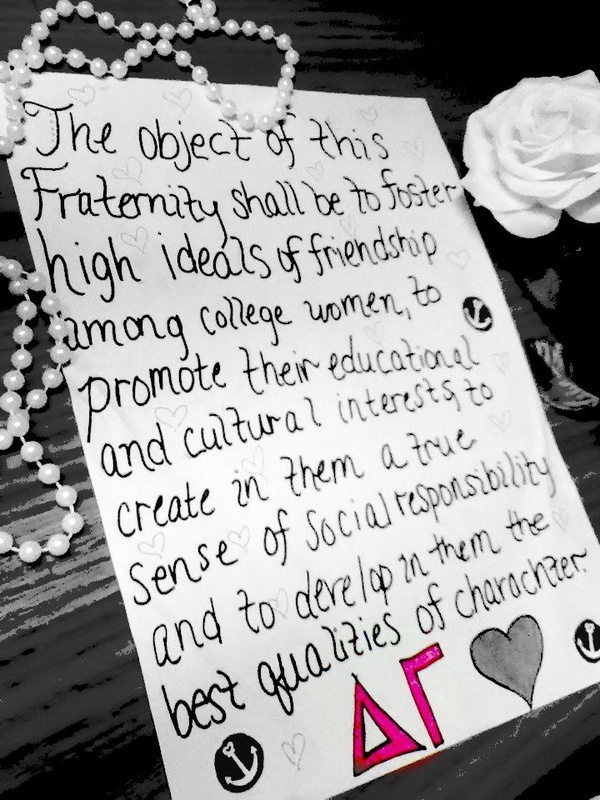 The object of this
Fraternity shall be to foster
high ideals of friendship
among college women, to
promote their educational
and cultural interests, to
create in them a true
sense of social responsibility
and to develop in them the
best qualities of charachter.
ΔΓ